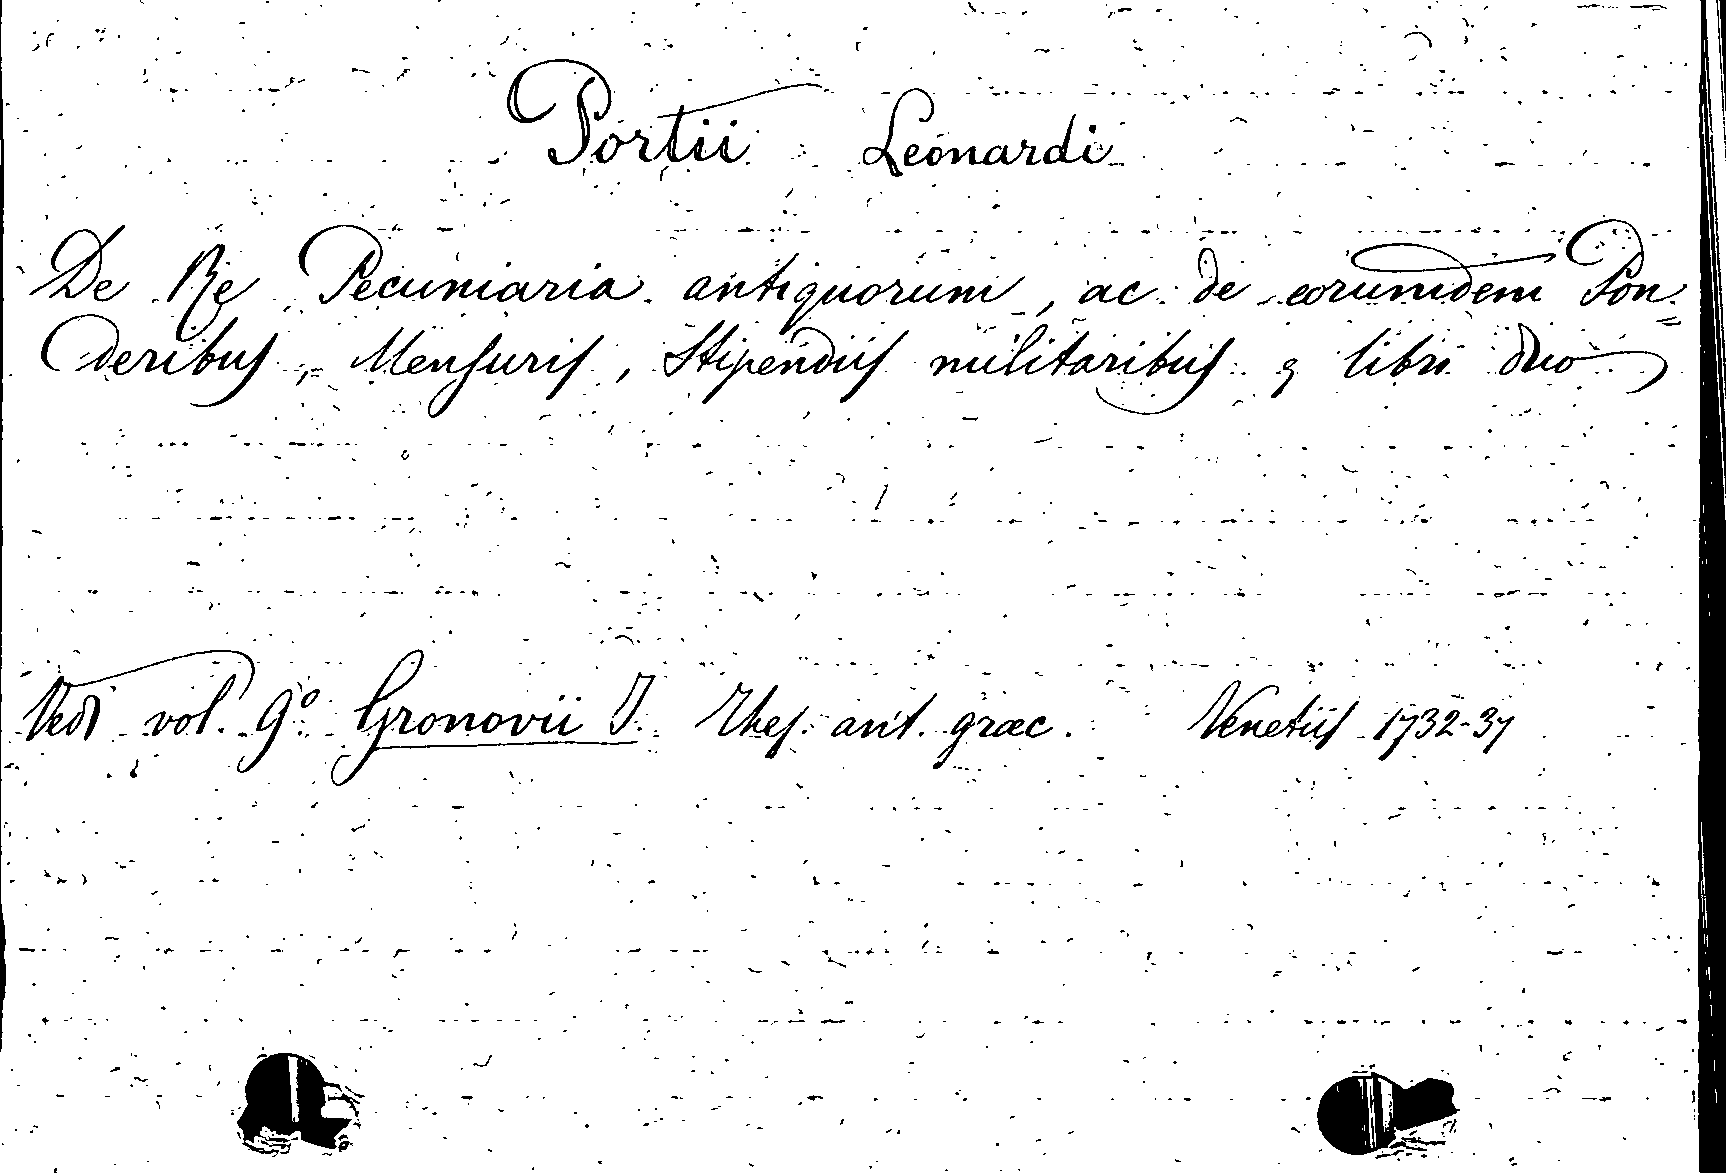 Portii Leonardi
De Re Pecuniaria antiquorum, ac de eorumdem Pon=
deribus, Mensuris, Stipendiis militaribus libri duo
Vedi vol. 9º Gronovii J. Thes. ant. græc. Venetiis 1732-37